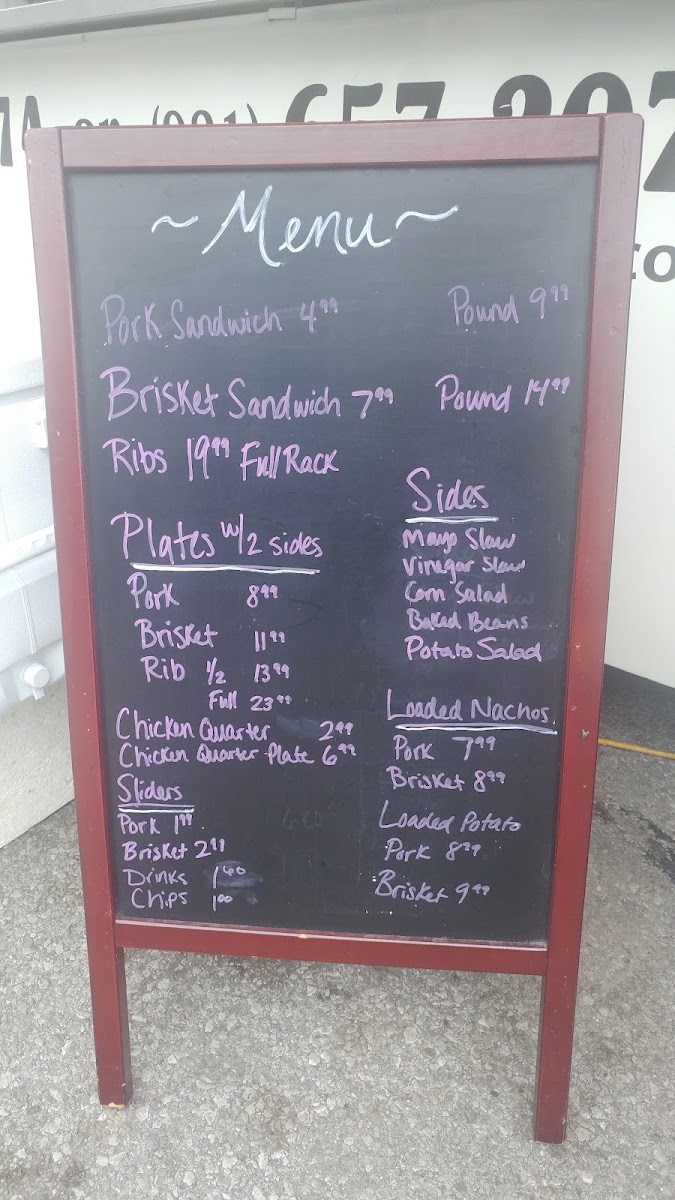 657-207
~ Menu ~
Pork Sandwich 4.99 Pound 9.99
Brisket Sandwich 7.99 Pound 14.99
Ribs 19.99 Full Rack
Plates w/2 sides
Pork 8.99
Brisket 11.99
Rib 1/2 13.99
Full 23.99
Chicken Quarter 2.99
Chicken Quarter Plate 6.99
Sliders
Pork 1.99
Brisket 2.99
Drinks 1.00
Chips 1.00
Sides
Mayo Slaw
Vinegar Slaw
Corn Salad
Baked Beans
Potato Salad
Loaded Nachos
Pork 7.99
Brisket 8.99
Loaded Potato
Pork 8.99
Brisket 9.99